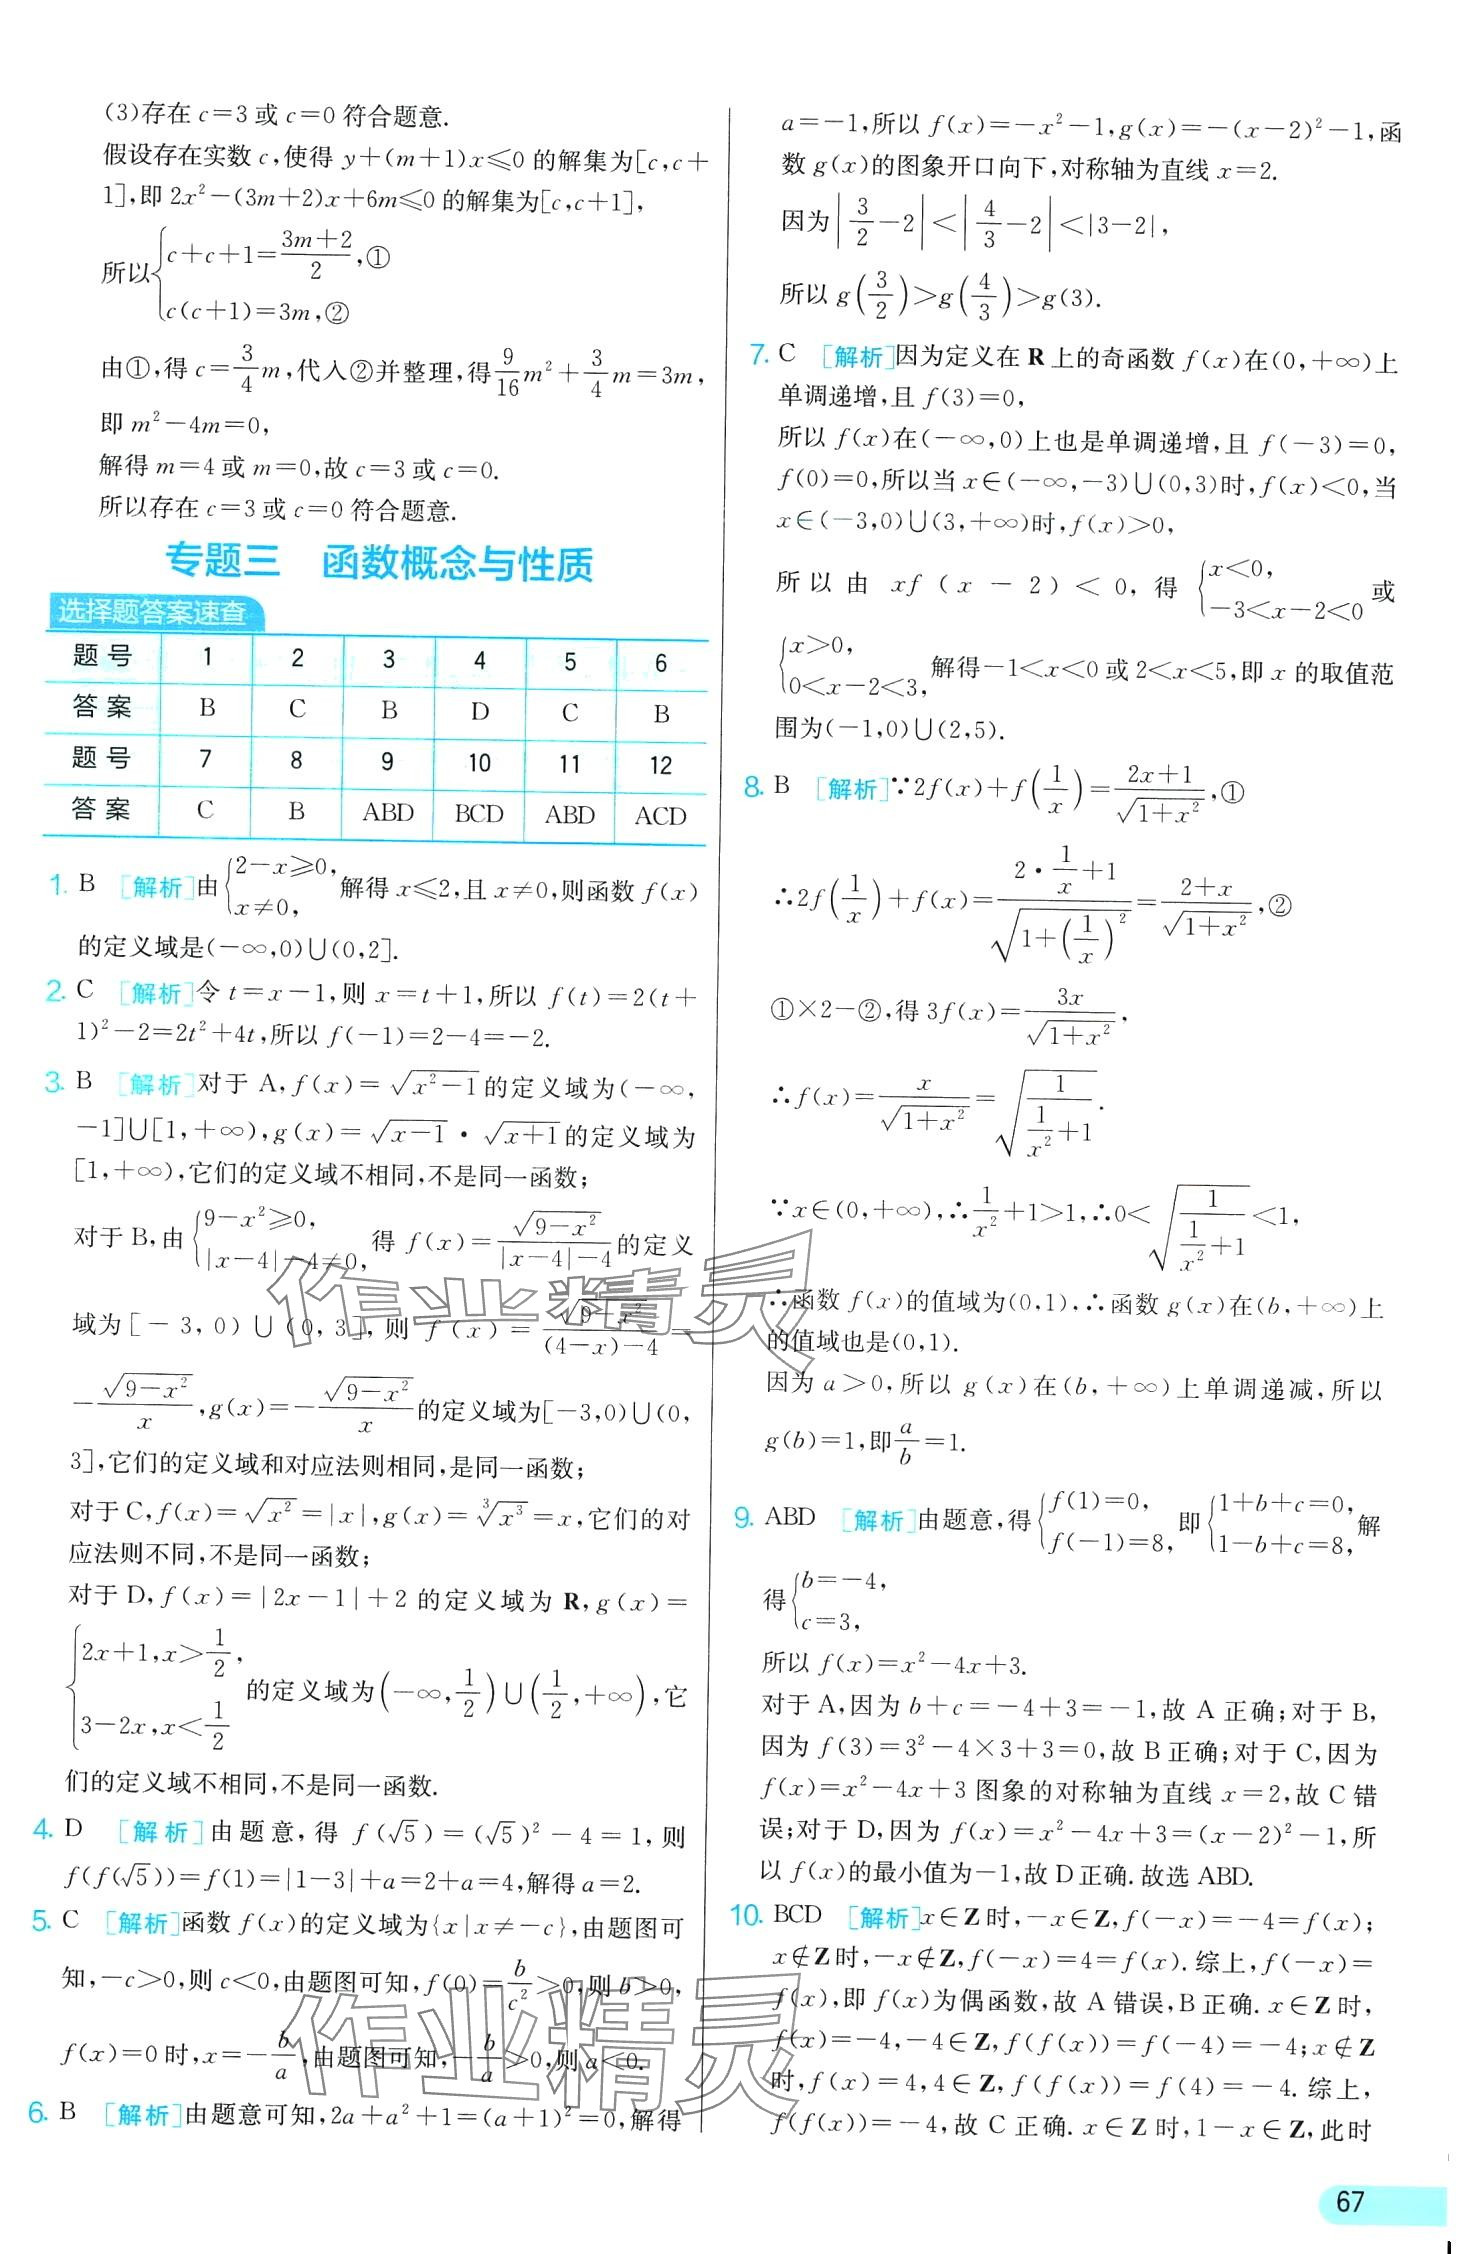 (3)存在 c=3 或 c=0 符合题意.
假设存在实数 c,使得 y+(m+1)x≤0 的解集为[c,c+
1],即 2x²-(3m+2)x+6m≤0 的解集为[c,c+1],
所以{c+c+1=(3m+2)/2,①
c(c+1)=3m,②
由①,得 c=3/4 m,代入②并整理,得 9/16 m²+3/4 m=3m,
即 m²-4m=0,
解得 m=4 或 m=0,故 c=3 或 c=0.
所以存在 c=3 或 c=0 符合题意.
专题三 函数概念与性质
选择题答案速查
题号 1 2 3 4 5 6
答案 B C B D C B
题号 7 8 9 10 11 12
答案 C B ABD BCD ABD ACD
1. B [解析]由{2-x≥0, x≠0, 解得 x≤2,且 x≠0,则函数 f(x)
的定义域是(-∞,0)∪(0,2].
2. C [解析]令 t=x-1,则 x=t+1,所以 f(t)=2(t+
1)²-2=2t²+4t,所以 f(-1)=2-4=-2.
3. B [解析]对于 A,f(x)=√(x²-1)的定义域为(-∞,
-1]∪[1,+∞),g(x)=√(x-1)·√(x+1)的定义域为
[1,+∞),它们的定义域不相同,不是同一函数;
对于 B,由{9-x²≥0, |x-4|-4≠0, 得 f(x)=√(9-x²)/(|x-4|-4)的定义
域为[-3,0)∪(0,3],则 f(x)=√(9-x²)/((4-x)-4)=
-√(9-x²)/x,g(x)=-√(9-x²)/x的定义域为[-3,0)∪(0,
3],它们的定义域和对应法则相同,是同一函数;
对于 C,f(x)=√(x²)=|x|,g(x)=∛(x³)=x,它们的对
应法则不同,不是同一函数;
对于 D,f(x)=|2x-1|+2 的定义域为 R,g(x)=
{2x+1,x>1/2, 3-2x,x<1/2 的定义域为(-∞,1/2)∪(1/2,+∞),它
们的定义域不相同,不是同一函数.
4. D [解析]由题意,得 f(√5)=(√5)²-4=1,则
f(f(√5))=f(1)=|1-3|+a=2+a=4,解得 a=2.
5. C [解析]函数 f(x)的定义域为{x|x≠-c},由题图可
知,-c>0,则 c<0,由题图可知,f(0)=b/c²>0,则 b>0,
f(x)=0 时,x=-b/a,由题图可知,-b/a>0,则 a<0.
6. B [解析]由题意可知,2a+a²+1=(a+1)²=0,解得
a=-1,所以 f(x)=-x²-1,g(x)=-(x-2)²-1,函
数 g(x)的图象开口向下,对称轴为直线 x=2.
因为|3/2-2|<|4/3-2|<|3-2|,
所以 g(3/2)>g(4/3)>g(3).
7. C [解析]因为定义在 R 上的奇函数 f(x)在(0,+∞)上
单调递增,且 f(3)=0,
所以 f(x)在(-∞,0)上也是单调递增,且 f(-3)=0,
f(0)=0,所以当 x∈(-∞,-3)∪(0,3)时,f(x)<0,当
x∈(-3,0)∪(3,+∞)时,f(x)>0,
所以由 xf(x-2)<0,得{x<0, -3<x-2<0 或
{x>0, 0<x-2<3, 解得-1<x<0 或 2<x<5,即 x 的取值范
围为(-1,0)∪(2,5).
8. B [解析]∵2f(x)+f(1/x)=(2x+1)/√(1+x²),①
∴2f(1/x)+f(x)=(2·1/x+1)/√(1+(1/x)²)=(2+x)/√(1+x²),②
①×2-②,得 3f(x)=3x/√(1+x²),
∴f(x)=x/√(1+x²)=√(1/(1/x²+1)).
∵x∈(0,+∞),∴1/x²+1>1,∴0<√(1/(1/x²+1))<1,
∴函数 f(x)的值域为(0,1),∴函数 g(x)在(b,+∞)上
的值域也是(0,1).
因为 a>0,所以 g(x)在(b,+∞)上单调递减,所以
g(b)=1,即a/b=1.
9. ABD [解析]由题意,得{f(1)=0, f(-1)=8, 即{1+b+c=0, 1-b+c=8, 解
得{b=-4, c=3,
所以 f(x)=x²-4x+3.
对于 A,因为 b+c=-4+3=-1,故 A 正确;对于 B,
因为 f(3)=3²-4×3+3=0,故 B 正确;对于 C,因为
f(x)=x²-4x+3 图象的对称轴为直线 x=2,故 C 错
误;对于 D,因为 f(x)=x²-4x+3=(x-2)²-1,所
以 f(x)的最小值为-1,故 D 正确.故选 ABD.
10. BCD [解析]x∈Z 时,-x∈Z,f(-x)=-4=f(x);
x∉Z 时,-x∉Z,f(-x)=4=f(x).综上,f(-x)=
f(x),即 f(x)为偶函数,故 A 错误,B 正确.x∈Z 时,
f(x)=-4,-4∈Z,f(f(x))=f(-4)=-4;x∉Z
时,f(x)=4,4∈Z,f(f(x))=f(4)=-4.综上,
f(f(x))=-4,故 C 正确.x∈Z 时,1-x∈Z,此时
作业精灵
作业精灵
67